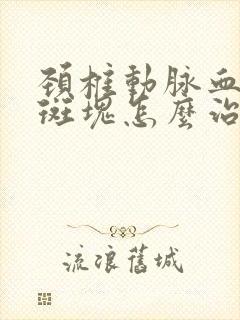 頚椎動脉血
斑塊怎麼治
流浪舊城